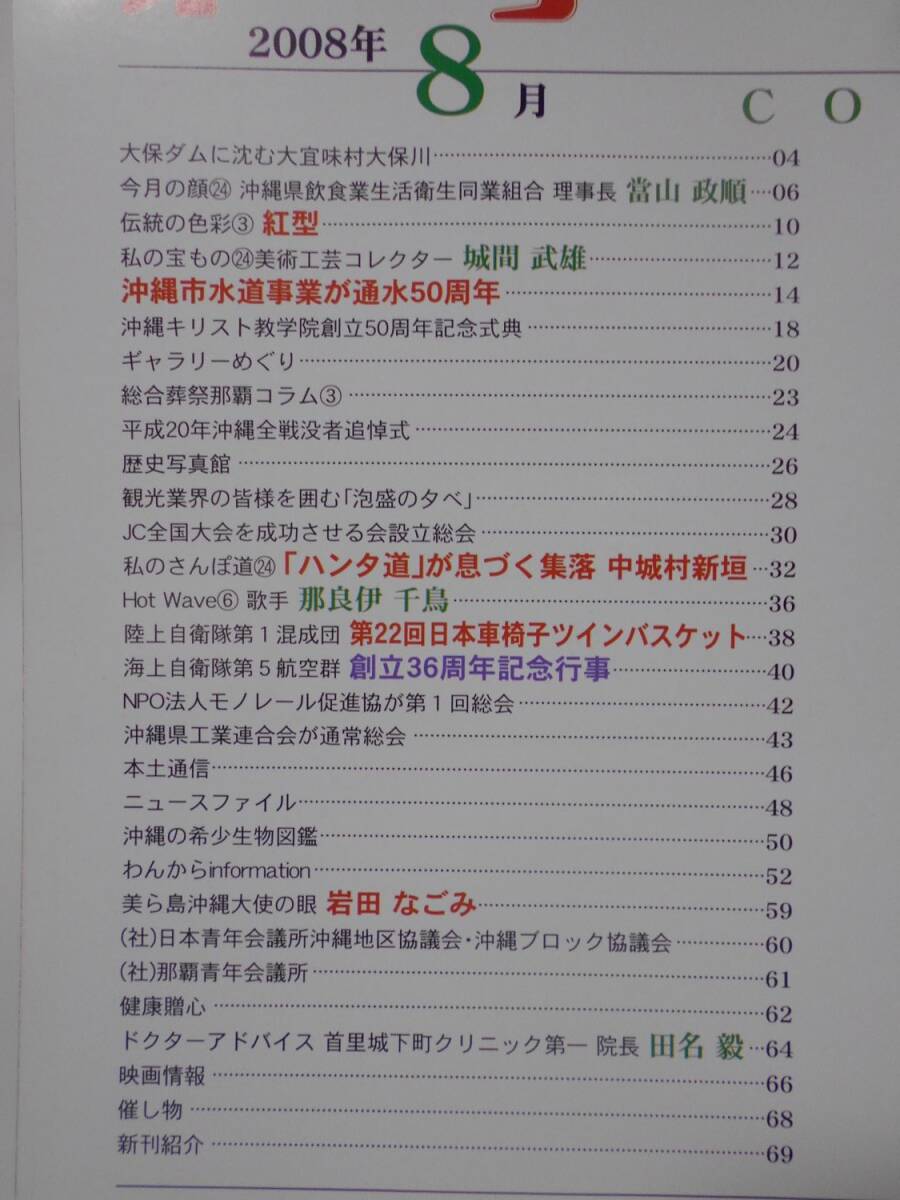 2008年 8月
C O
大保ダムに沈む大宜味村大保川……04
今月の顔㉔ 沖縄県飲食業生活衛生同業組合 理事長 當山 政順…06
伝統の色彩③ 紅型……10
私の宝もの㉔美術工芸コレクター 城間 武雄……12
沖縄市水道事業が通水50周年……14
沖縄キリスト教学院創立50周年記念式典……18
ギャラリーめぐり……20
総合葬祭那覇コラム③……23
平成20年沖縄全戦没者追悼式……24
歴史写真館……26
観光業界の皆様を囲む「泡盛の夕べ」……28
JC全国大会を成功させる会設立総会……30
私のさんぽ道㉔「ハンタ道」が息づく集落 中城村新垣…32
Hot Wave⑥ 歌手 那良伊 千鳥……36
陸上自衛隊第1混成団 第22回日本車椅子ツインバスケット…38
海上自衛隊第5航空群 創立36周年記念行事……40
NPO法人モノレール促進協が第1回総会……42
沖縄県工業連合会が通常総会……43
本土通信……46
ニュースファイル……48
沖縄の希少生物図鑑……50
わんからinformation……52
美ら島沖縄大使の眼 岩田 なごみ……59
(社)日本青年会議所沖縄地区協議会・沖縄ブロック協議会……60
(社)那覇青年会議所……61
健康贈心……62
ドクターアドバイス 首里城下町クリニック第一 院長 田名 毅…64
映画情報……66
催し物……68
新刊紹介……69